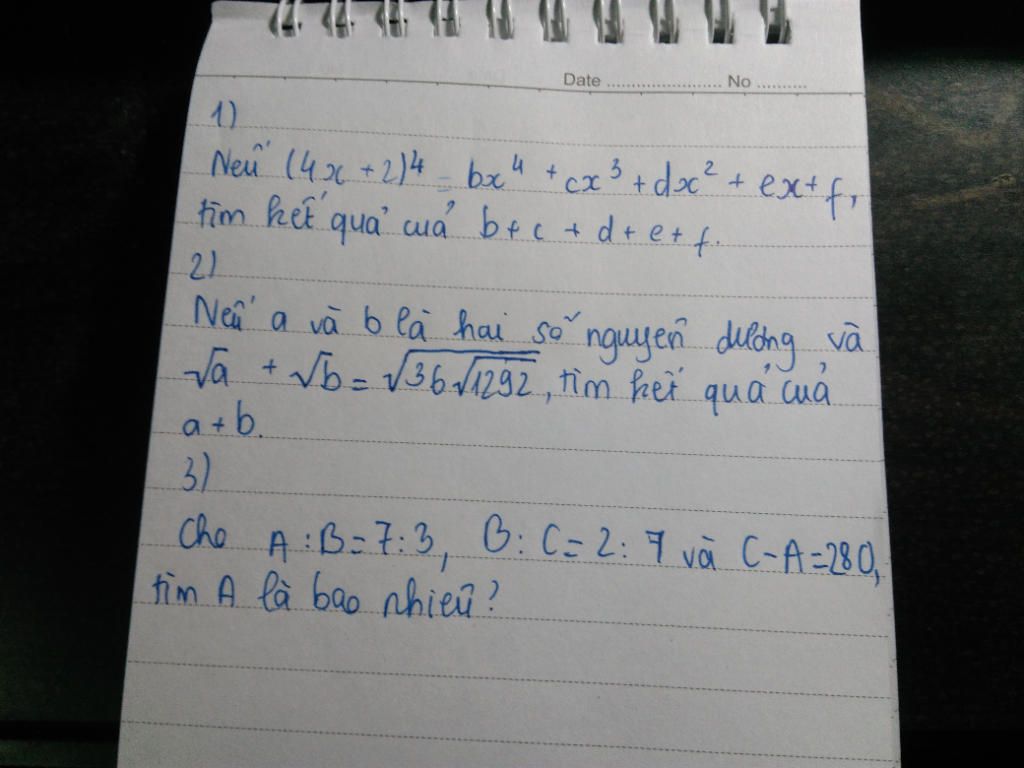 Date ........................ No ..........
1)
Nếu (4x + 2)⁴ = bx⁴ + cx³ + dx² + ex + f,
tìm kết quả của b + c + d + e + f.
2)
Nếu a và b là hai số nguyên dương và
√a + √b = √(36√1292), tìm kết quả của
a + b.
3)
Cho A : B = 7 : 3, B : C = 2 : 7 và C - A = 280,
tìm A là bao nhiêu?